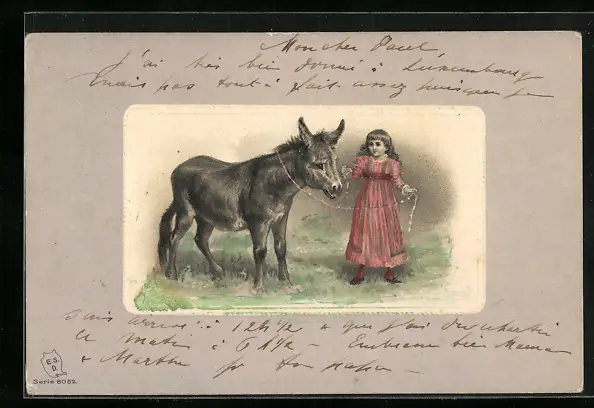 Mon cher Paul,
J'ai très bien dormi à Luxembourg
mais pas tout à fait assez puisque je
suis arrivé à 12h 1/2 & que j'ai
ce matin à 6 h 1/2 - Embrasse bien Maman
& Marthe
E.S.
D.
Serie 8062